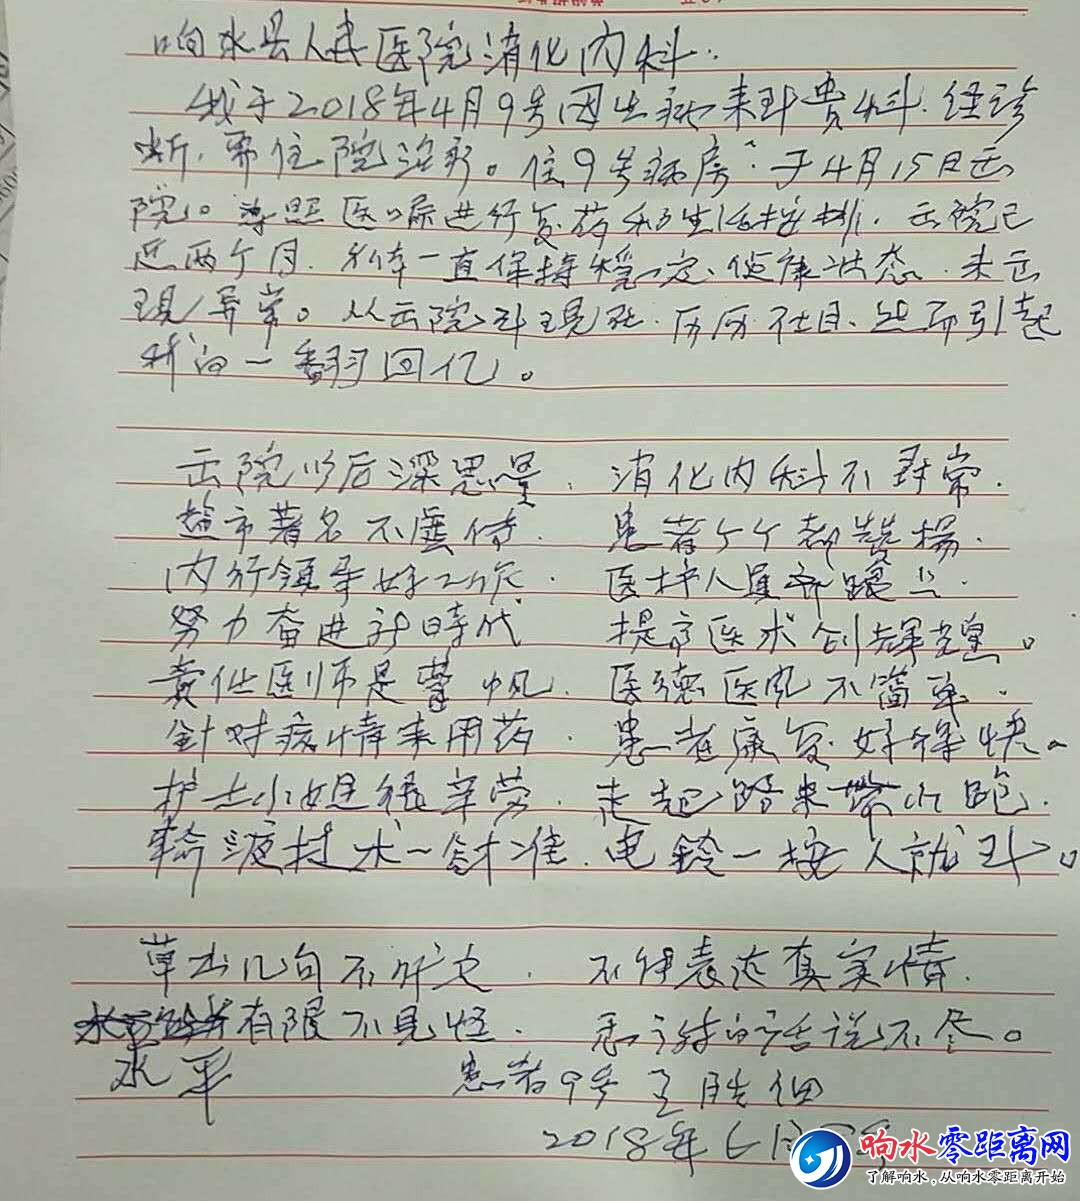 响水县人民医院消化内科.
我于2018年4月9号因生病来到贵科.经诊
断,需住院治疗。住9号病房.于4月15日出
院。遵照医嘱进行复药和生活按排,出院已
近两个月.身体一直保持稳定、健康状态.未出
现异常。从出院到现在.历历在目、从而引起
我的一翻回忆。
出院以后深思量. 消化内科不寻常.
盐市著名不虚传. 患者个个都赞揚.
内行領导好工作. 医护人員齐跟上.
努力奋进新時代 提高医术创辉煌。
黄 医师是 帆. 医德医风不簡单.
針对病情来用药. 患者康复好得快。
护士小姐很辛劳. 走起路来带小跑.
輸液技术一針准.电鈴一按人就到。
草出几句不 文. 不 表达真实情.
有限不見怪. 感谢的话说不尽。
水平 患者9号王胜
2018年6月
响水零距离网
了解响水,从响水零距离开始